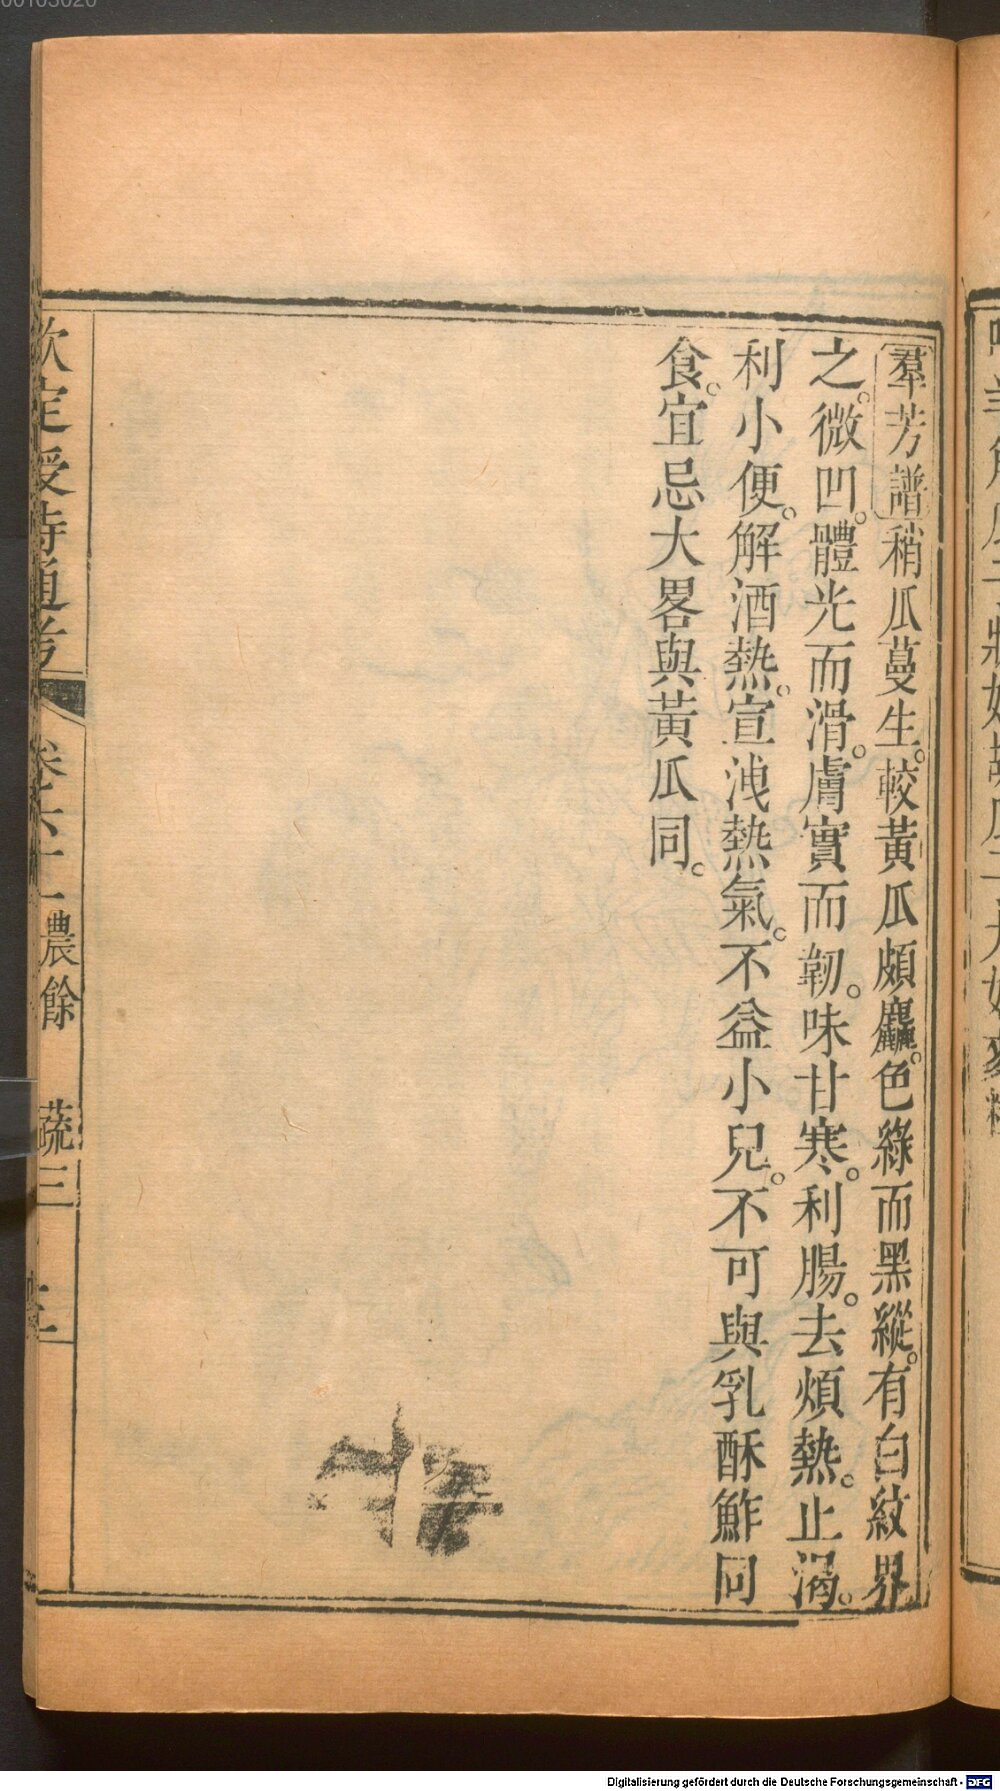 羣芳譜稍瓜蔓生。較黃瓜頗麤。色綠而黑縱。有白紋界
之。微凹。體光而滑。膚實而韌。味甘寒。利腸。去煩熱。止渴。
利小便。解酒熱。宣洩熱氣。不益小兒。不可與乳酥鮓同
食。宜忌大畧與黃瓜同。
欽定授時通考
卷六十一農餘 蔬三
Digitalisierung gefördert durch die Deutsche Forschungsgemeinschaft - DFG